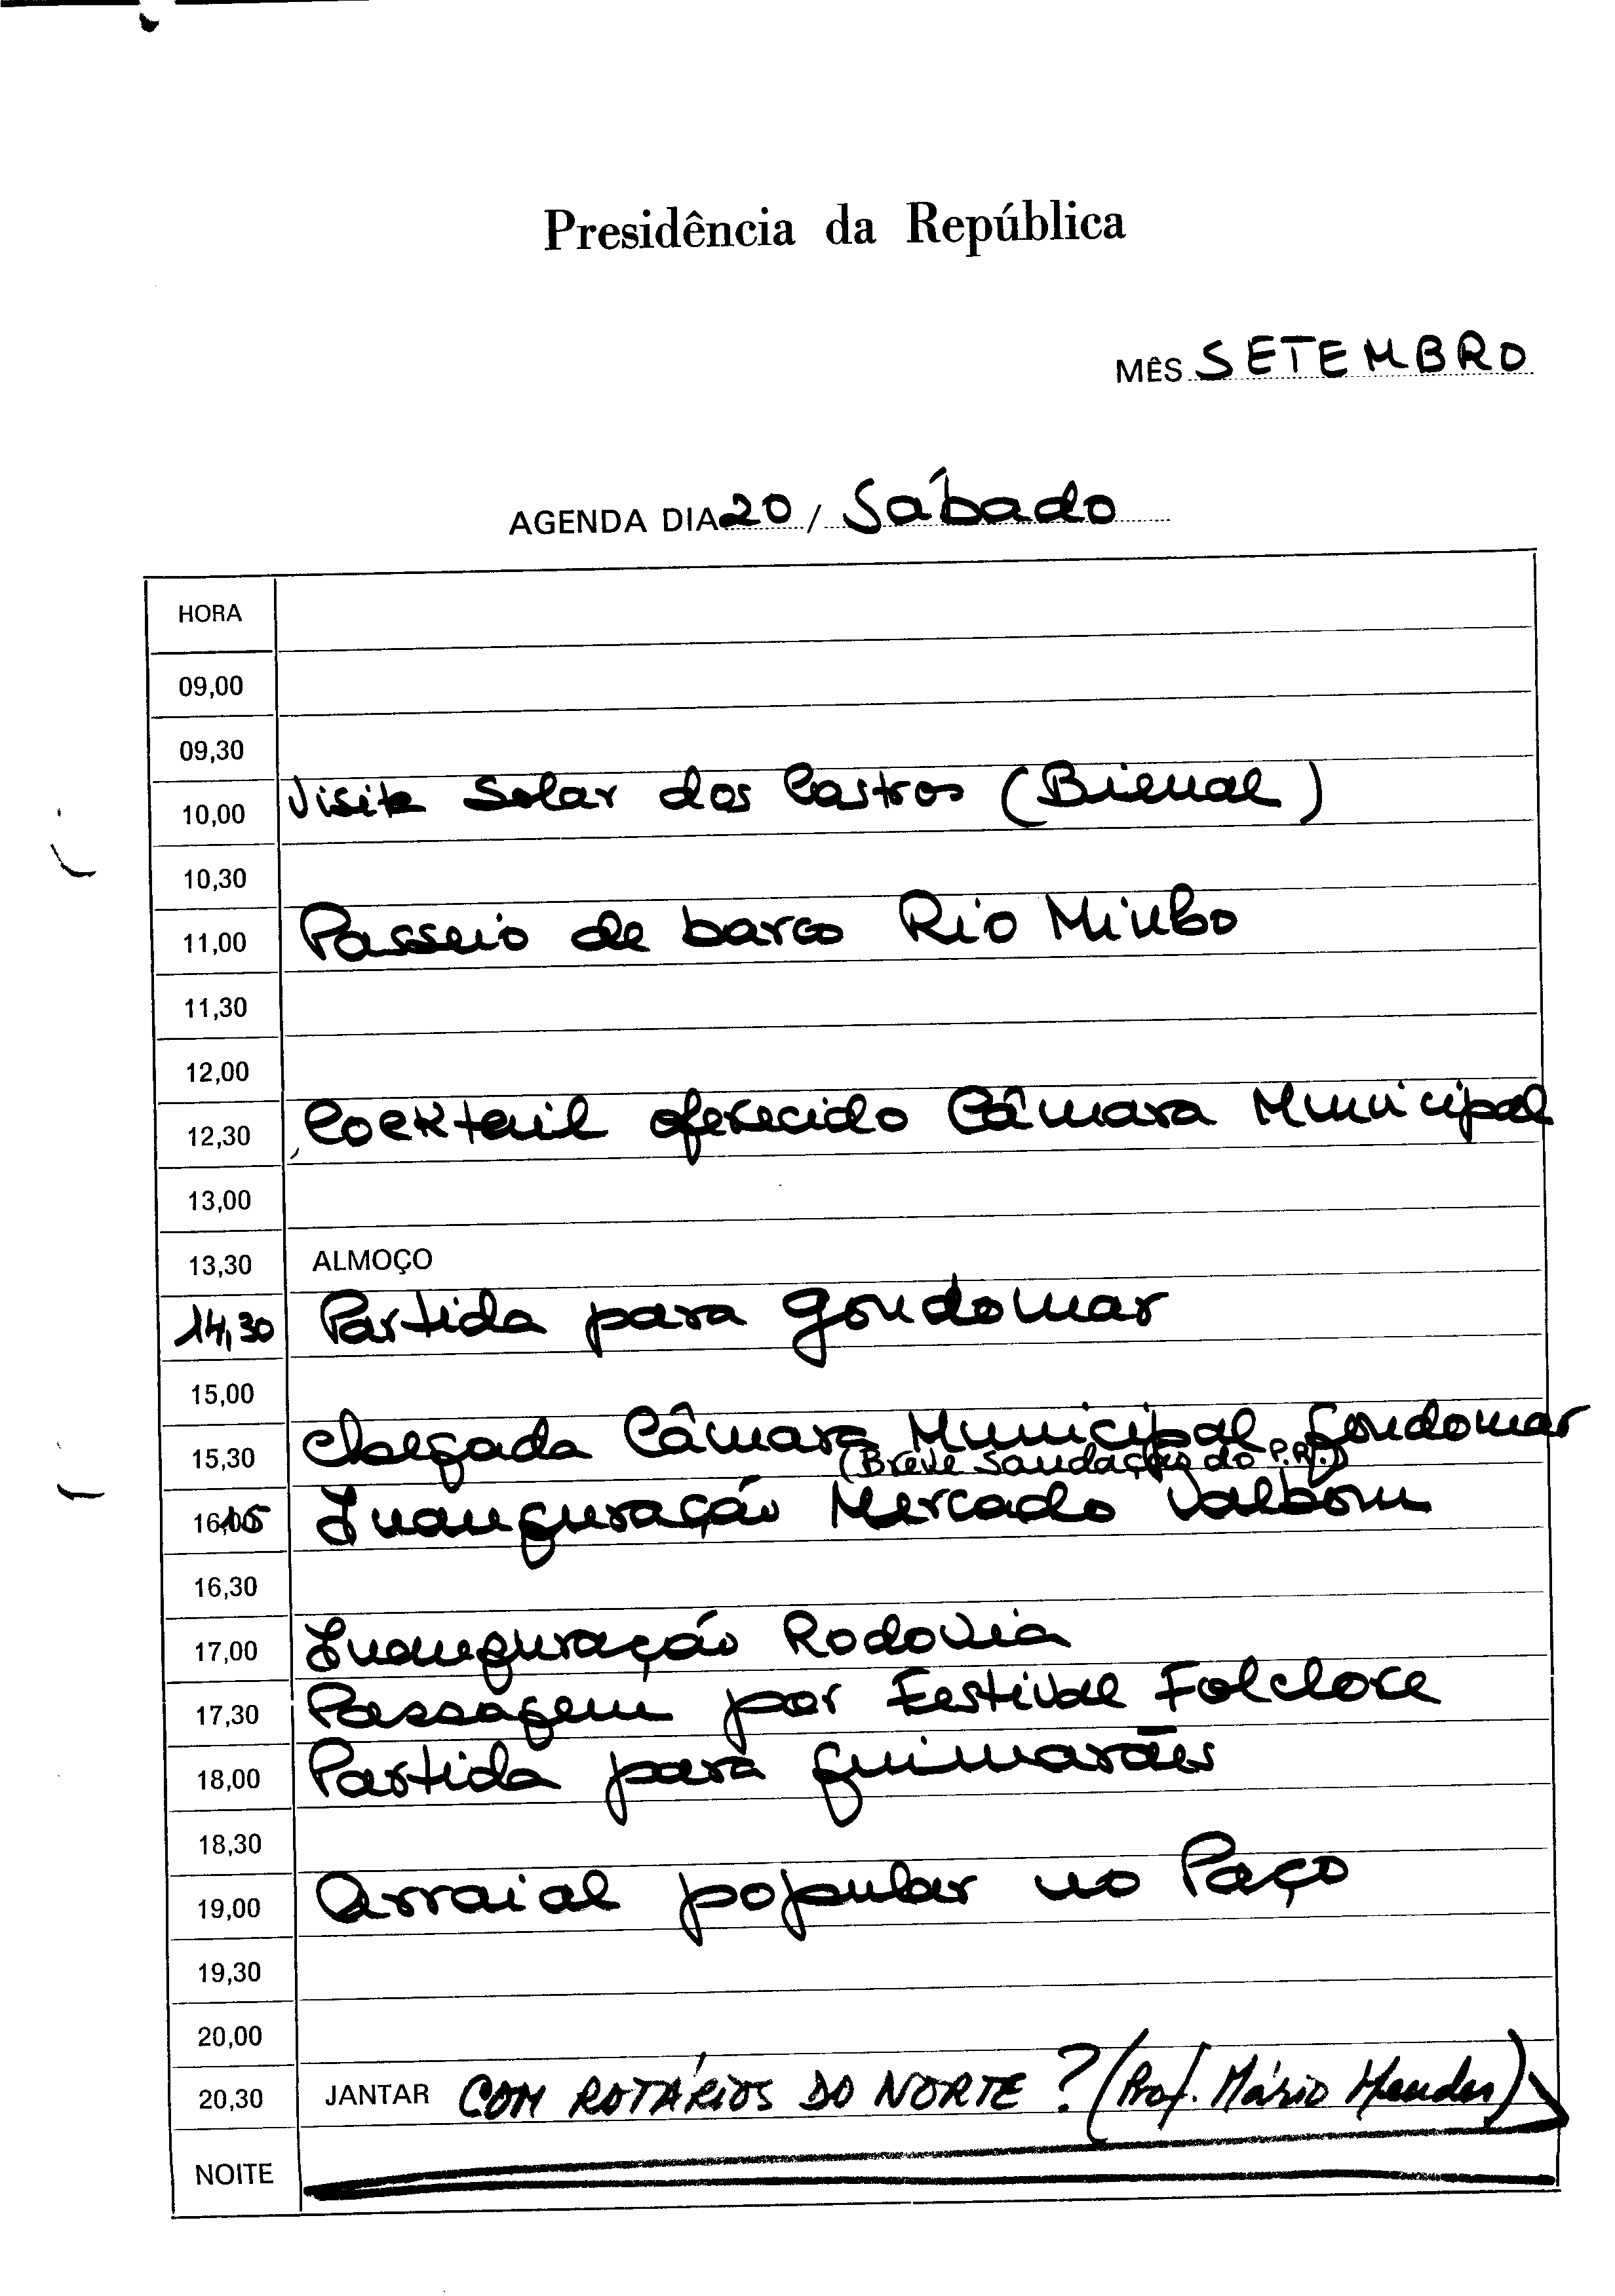 Presidência da República
MÊS SETEMBRO
AGENDA DIA 20 / Sábado
HORA
09,00
09,30
10,00 Visita Solar dos Castros (Bienal)
10,30
11,00 Passeio de barco Rio Minho
11,30
12,00
12,30 Cocktail oferecido Câmara Municipal
13,00
13,30 ALMOÇO
14,30 Partida para Gondomar
15,00
15,30 Chegada Câmara Municipal Gondomar
(Breve Saudação do P.R.)
16,15 Inauguração Mercado Valbom
16,30
17,00 Inauguração Rodovia
17,30 Passagem por Festival Folclore
18,00 Partida para Guimarães
18,30
19,00 Arraial popular no Paço
19,30
20,00
20,30 JANTAR COM ROTÁRIOS DO NORTE ? (Prof. Mário Mendes)
NOITE